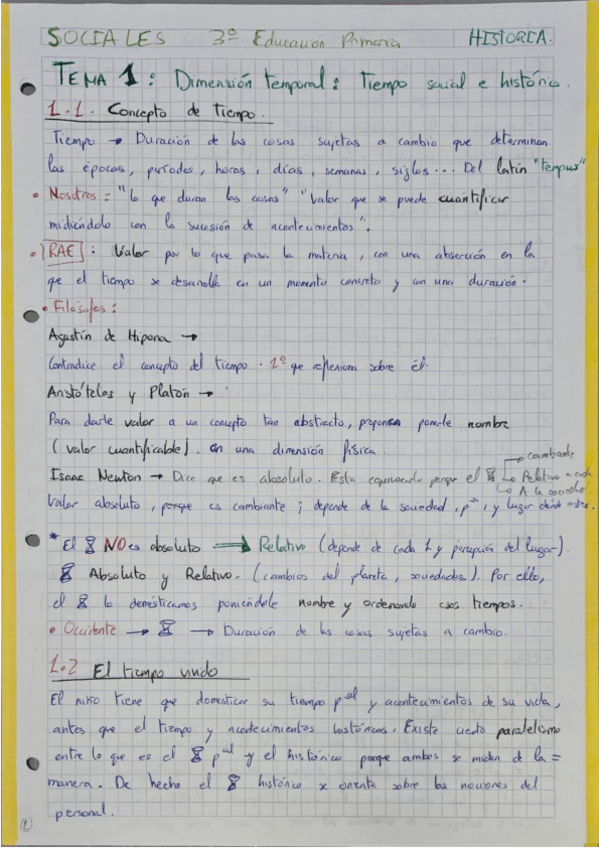 SOCIALES 3º Educación Primaria HISTORIA.
TEMA 1: Dimensión temporal: Tiempo social e histórico.
1.1. Concepto de Tiempo.
Tiempo → Duración de las cosas sujetas a cambio que determinan
las épocas, períodos, horas, días, semanas, siglos... Del latín "tempus"
• Nosotros: "lo que duran las cosas" "Valor que se puede cuantificar
midiéndolo con la sucesión de acontecimientos".
• RAE: Valor por lo que pasa la materia, con una absención en la
que el tiempo se desarrolla en un momento concreto y con una duración.
• Filósofos:
Agustín de Hipona →
Contradice el concepto del tiempo. 1º que reflexiona sobre él.
Aristóteles y Platón →
Para darle valor a un concepto tan abstracto, proponen ponerle nombre
(valor cuantificable). en una dimensión física.
→ cambiante
Isaac Newton → Dice que es absoluto. Esta equivocado porque el ⌛ → Relativo a cada
→ A la sociedad
Valor absoluto, porque es cambiante; depende de la sociedad, pᵃˢ, y lugar donde estés.
* El ⌛ NO es absoluto → Relativo (depende de cada 1 y percepción del lugar).
⌛ Absoluto y Relativo. (cambios del planeta, sociedades). Por ello,
el ⌛ lo domesticamos poniéndole nombre y ordenando esos tiempos.
• Occidente → ⌛ → Duración de las cosas sujetas a cambio.
1.2 El tiempo vivido
El niño tiene que domesticar su tiempo pᵃˡ y acontecimientos de su vida,
antes que el tiempo y acontecimientos históricos. Existe cierto paralelismo
entre lo que es el ⌛ pᵃˡ y el histórico porque ambos se miden de la =
manera. De hecho el ⌛ histórico se orienta sobre las nociones del
personal.
1